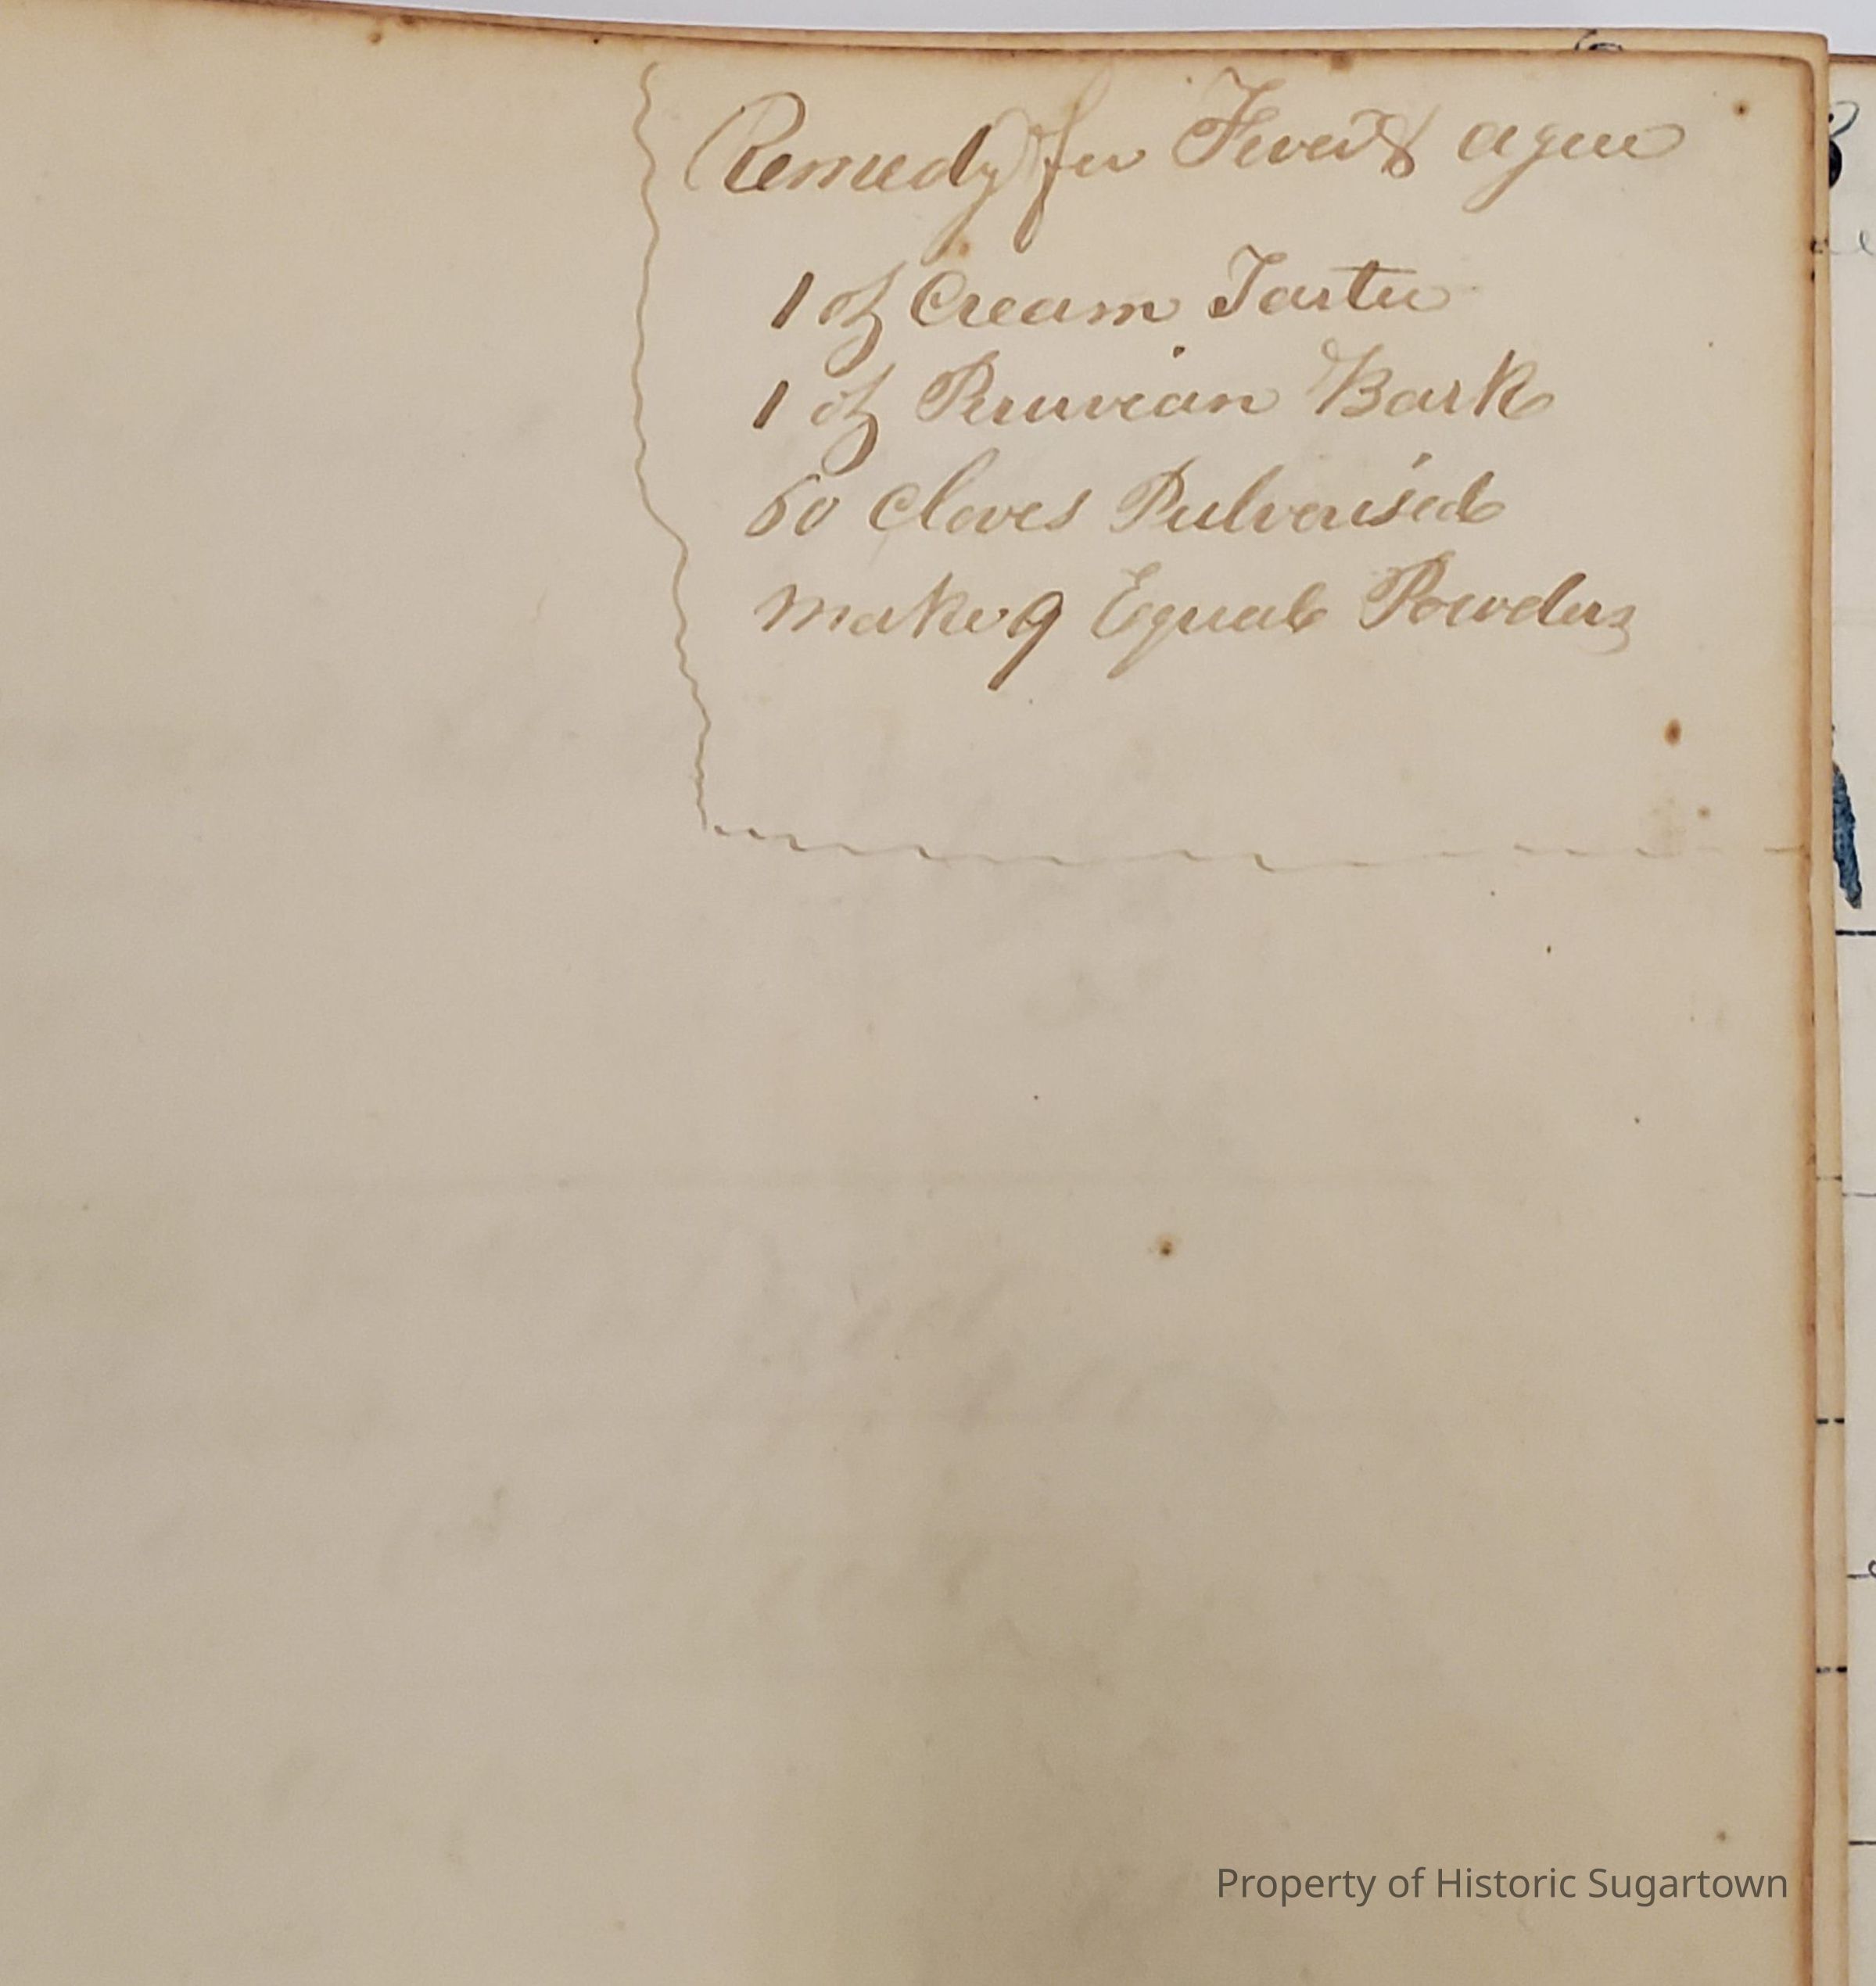 Remedy for Fever & ague
1 oz Cream Tarter
1 oz Peruvian Bark
60 Cloves Pulverised
make 9 Equal Powders
Property of Historic Sugartown